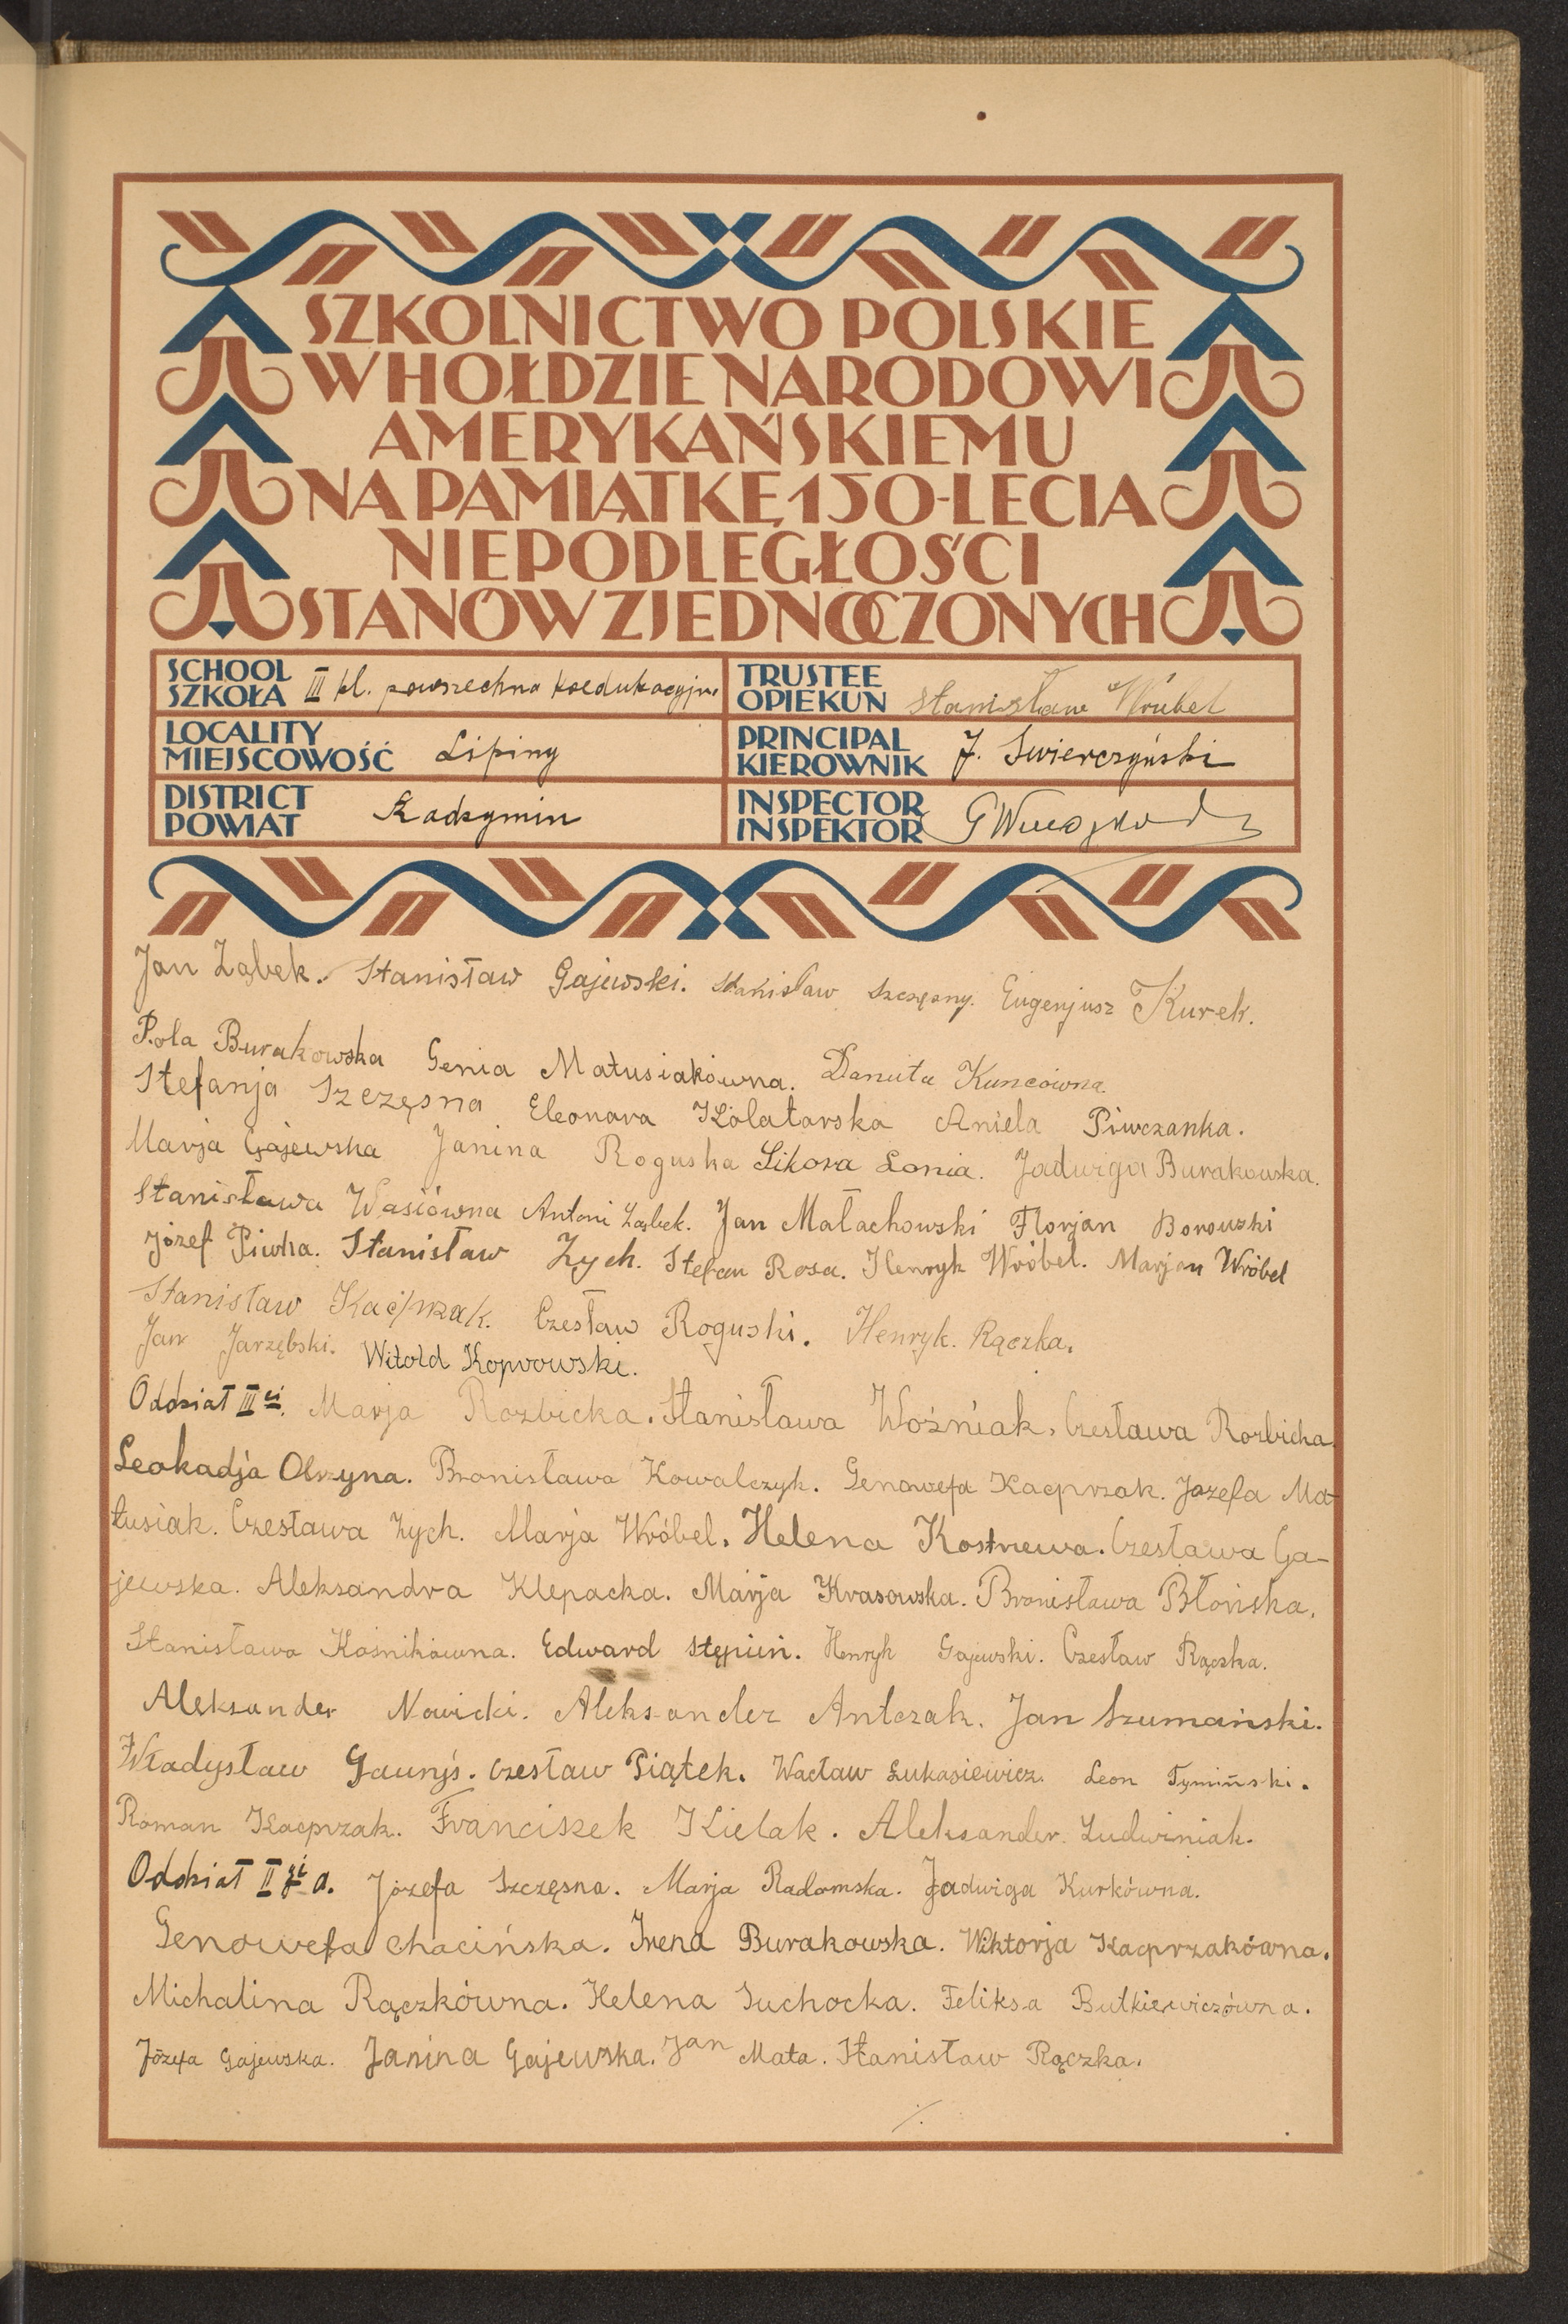 SZKOLNICTWO POLSKIE
W HOŁDZIE NARODOWI
AMERYKAŃSKIEMU
NA PAMIĄTKĘ 150-LECIA
NIEPODLEGŁOŚCI
STANÓW ZJEDNOCZONYCH
SCHOOL SZKOŁA III kl. powszechna koedukacyjna
TRUSTEE OPIEKUN Stanisław Wróbel
LOCALITY MIEJSCOWOŚĆ Lipiny
PRINCIPAL KIEROWNIK J. Swierczyński
DISTRICT POWIAT Radzymin
INSPECTOR INSPEKTOR
Jan Ząbek. Stanisław Gajewski. Stanisław Szczęsny. Eugenjusz Kurek.
Pola Burakowska Genia Matusiakówna. Danuta Kuncówna.
Stefanja Szczęsna Eleonora Kolatorska Aniela Piwczanka.
Marja Gajewska Janina Roguska Sikora Lonia. Jadwiga Burakowska.
Stanisława Wasiówna Antoni Ząbek. Jan Małachowski Florjan Borowski
Józef Piwka. Stanisław Zych. Stefan Rosa. Henryk Wróbel. Marjan Wróbel
Stanisław Kacprzak. Czesław Roguski. Henryk. Rączka.
Jan Jarzębski. Witold Koprowski.
Oddział III ci. Marja Rozbicka. Stanisława Woźniak. Czesława Rozbicka.
Leokadja Olszyna. Bronisława Kowalczyk. Genowefa Kacprzak. Jozefa Ma-
tusiak. Czesława Zych. Marja Wróbel. Helena Kostrzewa. Czesława Ga-
jewska. Aleksandra Klepacka. Marja Krasowska. Bronisława Błońska.
Stanisława Kośnikówna. Edward Stępień. Henryk Gajewski. Czesław Rączka.
Aleksander Nowicki. Aleksander Antczak. Jan Szumański.
Władysław Gauryś. Czesław Piątek. Wacław Łukasiewicz. Leon Tymiński.
Roman Kacprzak. Franciszek Kielak. Aleksander. Ludwiniak.
Oddział II gi a. Józefa Szczęsna. Marja Radomska. Jadwiga Kurkówna.
Genowefa Chacińska. Irena Burakowska. Wiktorja Kacprzakówna.
Michalina Rączkówna. Helena Suchocka. Feliksa Butkiewiczówna.
Józefa Gajewska. Janina Gajewska. Jan Mata. Stanisław Rączka.